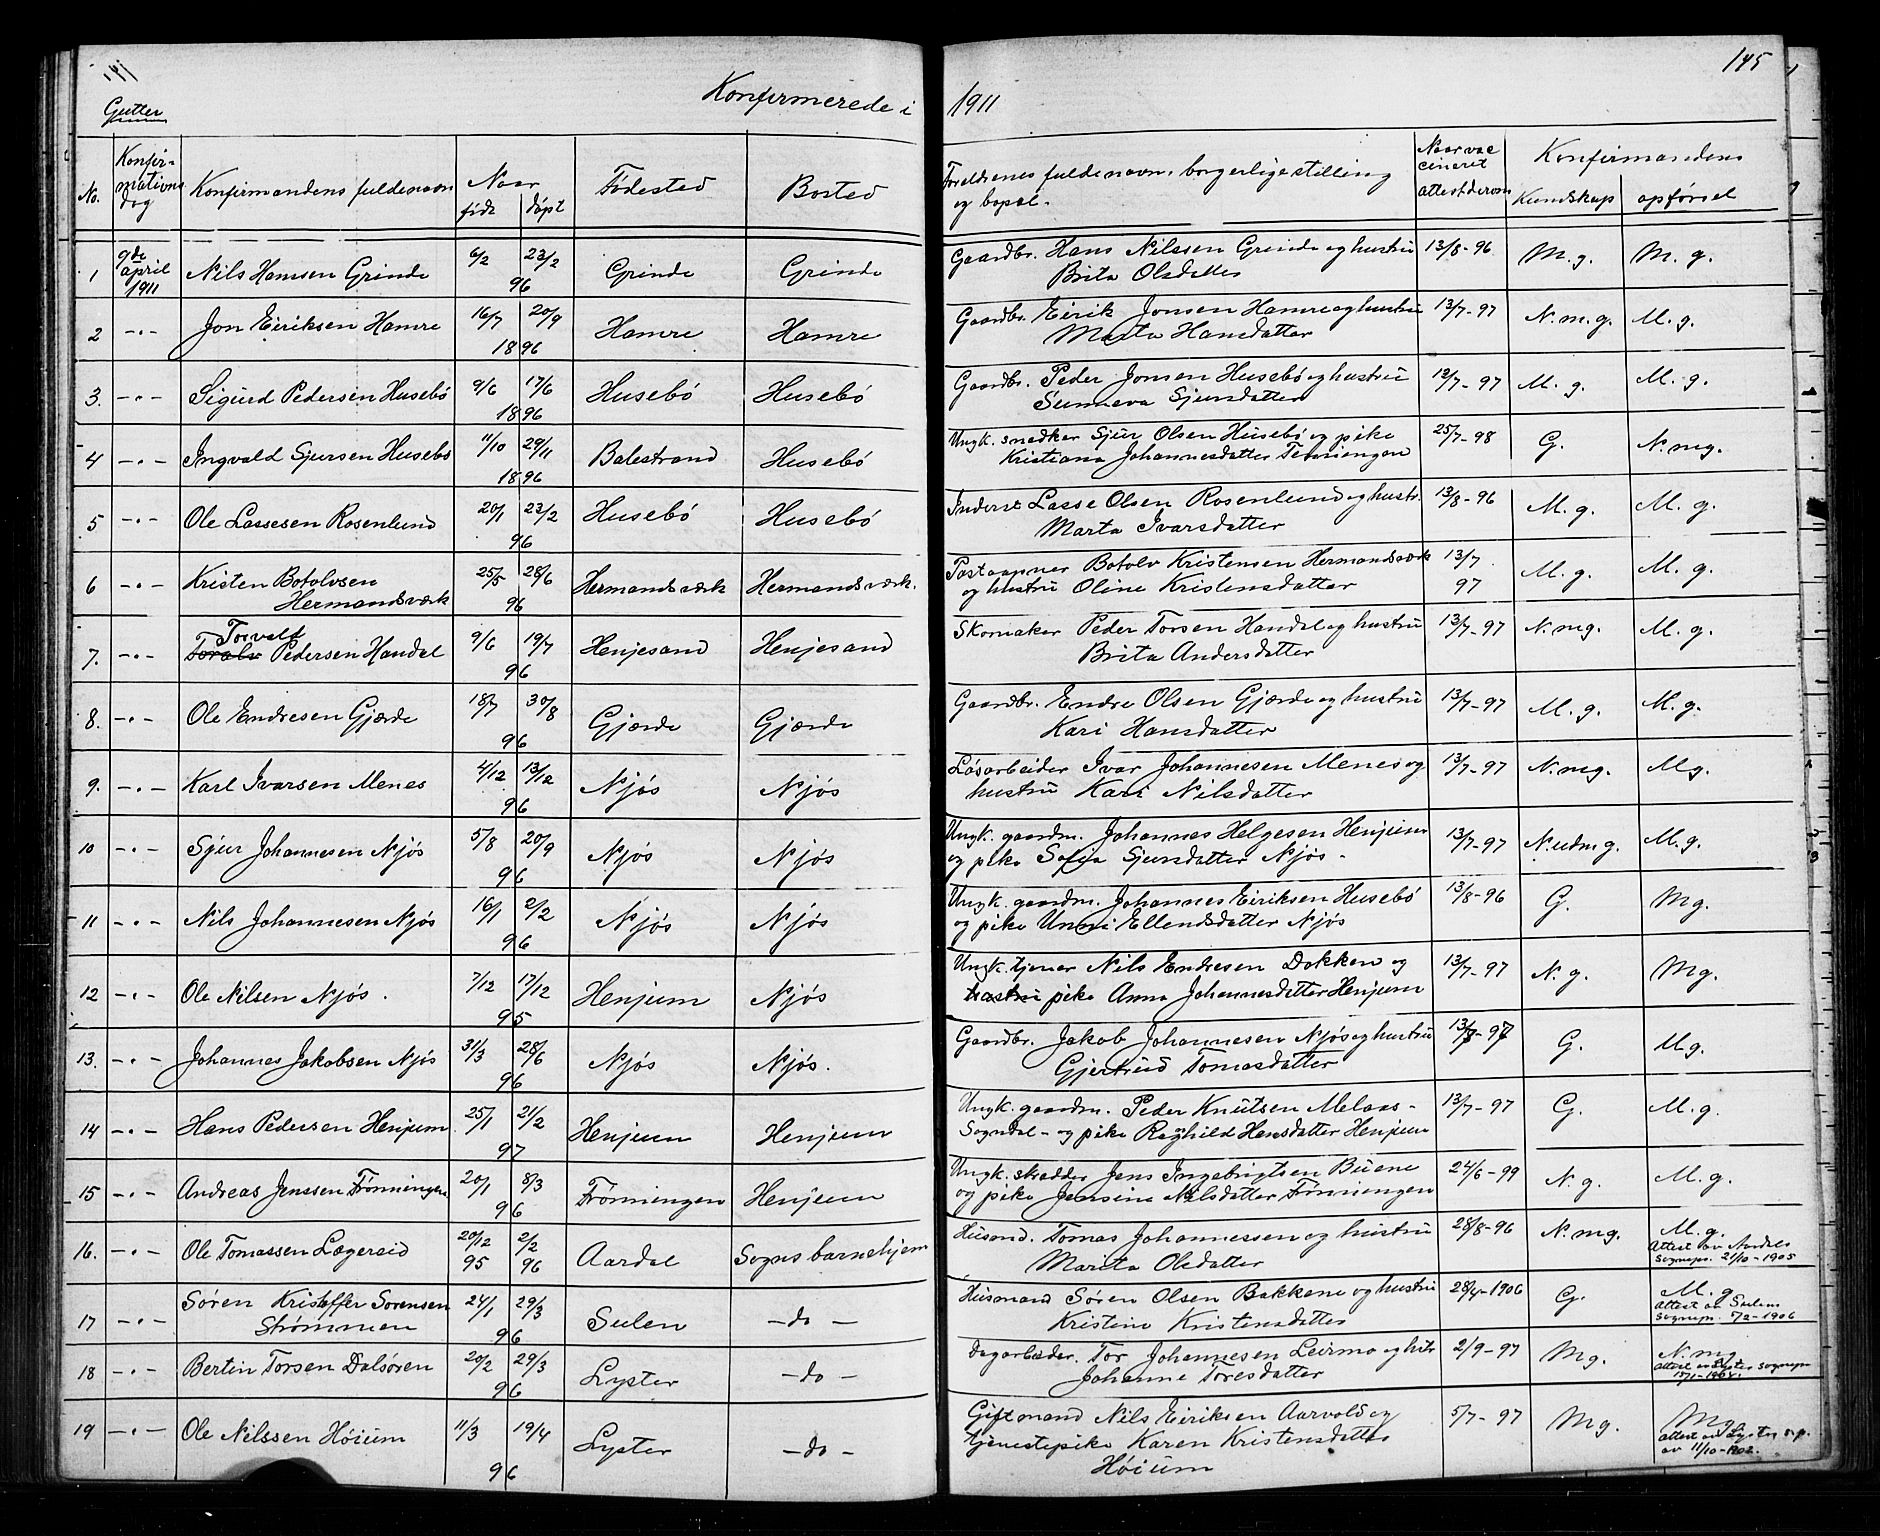 145
Konfirmerede i 1911
Gutter
No. | Konfirmations dag | Konfirmandens fulde navn | Naar født | døpt | Fødested | Bosted | Foreldrenes fulde navn, borgerlige stilling og bopæl. | Naar vaccineret attest derom | Konfirmandens Kundskap | opførsel
1 | 9de april 1911 | Nils Hansen Grinde | 6/2 | 23/2 96 | Grinde | Grinde | Gaardbr. Hans Nilssen Grinde og hustru Brita Olsdatter | 13/8-96 | M.g. | M.g.
2 | -"- | Jon Eiriksen Hamre | 16/7 | 20/9 1896 | Hamre | Hamre | Gaardbr. Eirik Jonsen Hamre og hustru Marta Hansdatter | 13/7-97 | N.m.g. | M.g.
3. | -"- | Sigurd Pedersen Husebø | 9/6 | 17/6 1896 | Husebø | Husebø | Gaardbr. Peder Jonsen Husebø og hustru Sunneva Sjursdatter | 12/7-97 | M.g. | M.g.
4 | -"- | Ingvald Sjursen Husebø | 11/10 | 29/11 1896 | Balestrand | Husebø | Ungk. snedker Sjur Olsen Husebø og pike Kristiana Johannesdatter | 25/7-98 | G. | N.mg.
5 | -"- | Ole Lassesen Rosenlund | 20/1 | 23/2 96 | Husebø | Husebø | Inderst Lasse Olsen Rosenlund og hustr. Marta Ivarsdatter | 13/8-96 | M.g. | M.g.
6 | -"- | Kristen Botolvsen Hermandsværk | 25/5 | 28/6 96 | Hermandsværk | Hermandsværk. | Postaapner Botolv Kristensen Hermandsværk og hustru Oline Kristensdatter | 13/7 97 | M.g. | M.g.
7. | -"- | Torvald Pedersen Handal | 9/6 | 19/7 96 | Henjesand | Henjesand | Skomaker Peder Torsen Handal og hustru Brita Andersdatter | 13/7-97 | N.mg. | M.g.
8. | -"- | Ole Endresen Gjærde | 18/7 | 30/8 96 | Gjærde | Gjærde | Gaardbr. Endre Olsen Gjærde og hustru Kari Hansdatter | 13/7-97 | M.g. | M.g.
9. | -"- | Karl Ivarsen Menes | 4/12 | 13/12 96 | Njøs | Njøs | Løsarbeider Ivar Johannesen Menes og hustru Kari Nilsdatter | 13/7-97 | N.mg. | Mg.
10 | -"- | Sjur Johannesen Njøs | 5/8 | 20/9 96 | Njøs | Njøs | Ungk. gaardm. Johannes Helgesen Henjum og pike Sofia Sjursdatter Njøs - | 13/7-97 | N.udm g. | M.g.
11 | -"- | Nils Johannesen Njøs | 16/1 | 2/2 96 | Njøs | Njøs | Ungk. gaardm. Johannes Eiriksen Husebø og pike Unni Ellendsdatter Njøs | 13/8-96 | G. | Mg.
12 | -"- | Ole Nilsen Njøs. | 7/12 | 17/12 95 | Henjum | Njøs | Ungk. tjener Nils Endresen Dokken og hustru pike Anna Johannesdatter Henjum | 13/7-97 | N.g. | Mg.
13. | -"- | Johannes Jakobsen Njøs | 31/3 | 28/6 96 | Njøs | Njøs. | Gaardbr. Jakob Johannesen Njøs og hustru Gjertrud Tomasdatter | 13/7-97 | G. | M.g.
14 | -"- | Hans Pedersen Henjum | 25/1 | 21/2 97 | Henjum | Henjum | Ungk. gaardm. Peder Knutsen Melaas - Sogndal - og pike Ragnhild Hansdatter Henjum | 13/7-97 | G. | M.g.
15 | -"- | Andreas Jenssen Frønningen | 20/1 | 8/3 96 | Frønningen | Henjum | Ungk. skredder Jens Ingebrigtsen Buene og pike Jensine Nilsdatter Frønningen | 24/6-99 | N.g. | M.g.
16. | -"- | Ole Tomassen Lægereid | 20/12 95 | 2/2 96 | Aardal | Sogns barnehjem | Husmd. Tomas Johannessen og hustru Marita Olsdatter | 28/8-96 | N.mg. | M.g. Attest av Aardals sognepr. 21/10-1905
17 | -"- | Søren Kristoffer Sørensen Strømmen | 24/1 | 29/3 96 | Sulen | -do- | Husmand Søren Olsen Bakkene og hustru Kristine Kristensdatter | 28/4-1906 | G. | M.g. attest av Sulens sognepr. 5/2-1906
18 | -"- | Bertin Torsen Dalsøren | 20/2 | 29/3 96 | Lyster | -do- | Dagarbeider. Tor Johannesen Leirmo og htr Johanne Toresdatter | 2/9-97 | Mg. | N.mg attest av Lyster sognepr
19 | -"- | Ole Nilssen Høium | 11/3 | 19/4 96 | Lyster | -do- | Giftmand Nils Eiriksen Aarvold og tjenestepike Karen Kristensdatter Høium | 5/7-97 | Mg. | Mg attest av Lyster s.p. av 11/10-1902.